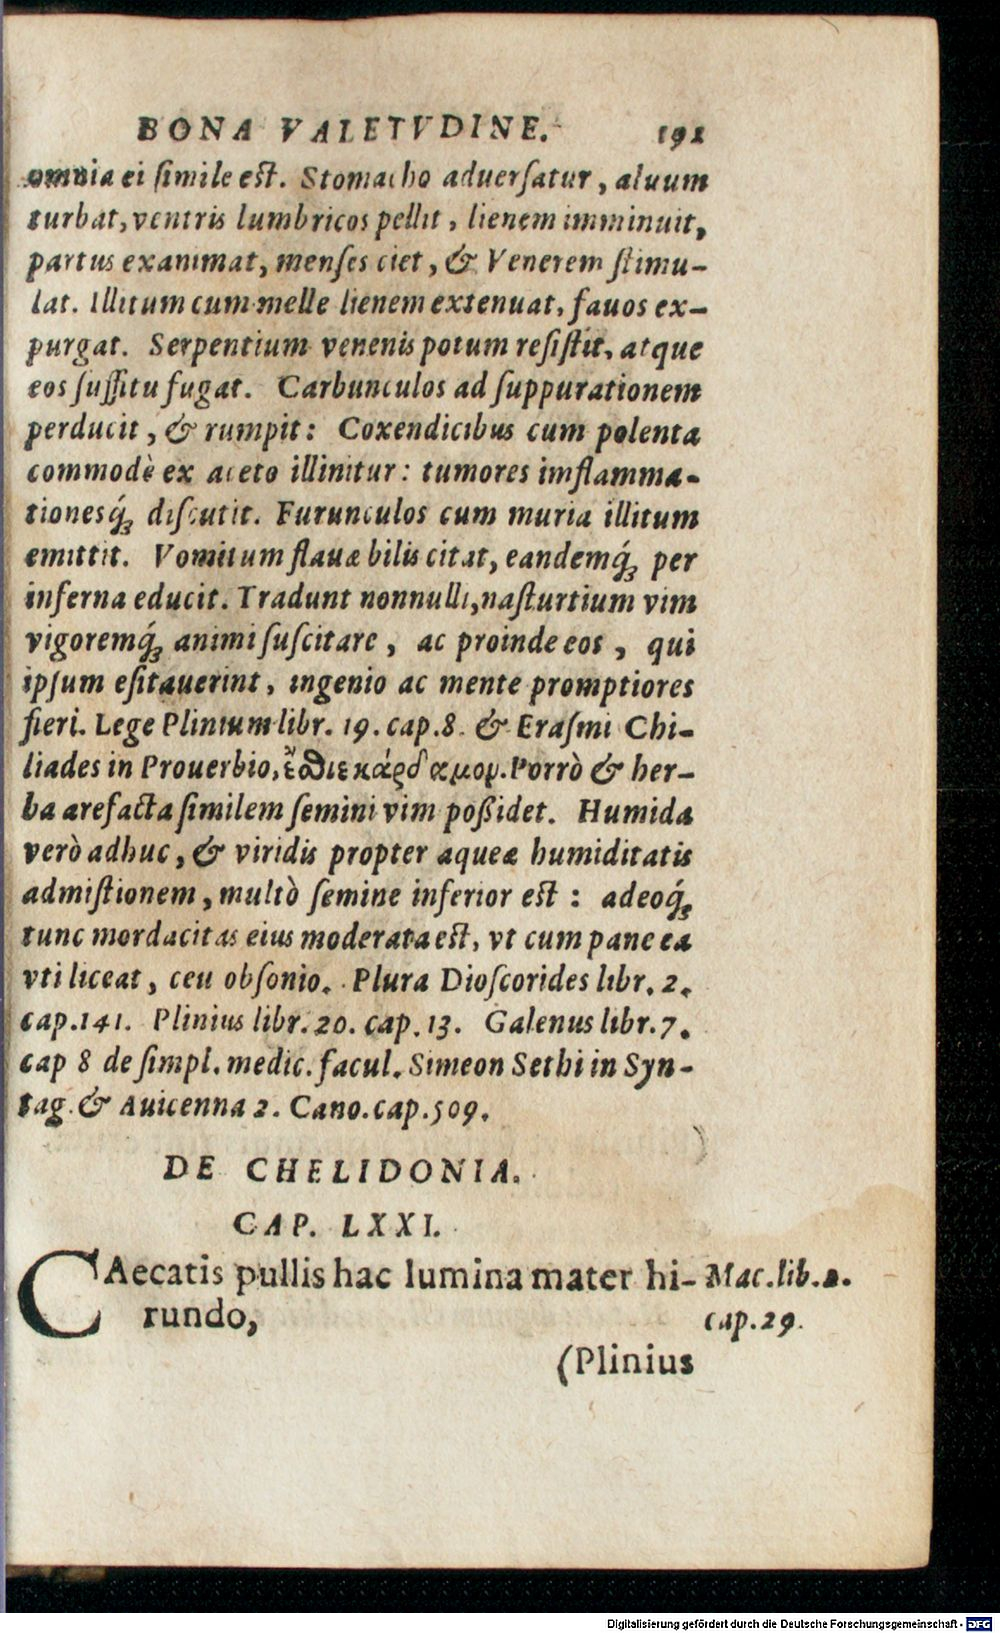 BONA VALETVDINE. 191
omnia ei ſimile eſt. Stomacho aduerſatur, aluum
turbat, ventris lumbricos pellit, lienem imminuit,
partus exanimat, menſes ciet, & Venerem ſtimu-
lat. Illitum cum melle lienem extenuat, fauos ex-
purgat. Serpentium venenis potum reſiſtit, atque
eos ſuffitu fugat. Carbunculos ad ſuppurationem
perducit, & rumpit: Coxendicibus cum polenta
commodè ex aceto illinitur: tumores imflamma-
tionesq́; diſcutit. Furunculos cum muria illitum
emittit. Vomitum flauæ bilis citat, eandemq́; per
inferna educit. Tradunt nonnulli, naſturtium vim
vigoremq́; animi ſuſcitare, ac proinde eos, qui
ipſum eſitauerint, ingenio ac mente promptiores
fieri. Lege Plinium libr. 19. cap. 8. & Eraſmi Chi-
liades in Prouerbio, ἔσθιε κάρδαμον. Porrò & her-
ba arefacta ſimilem ſemini vim poßidet. Humida
verò adhuc, & viridis propter aqueæ humiditatis
admiſtionem, multò ſemine inferior eſt: adeoq́;
tunc mordacitas eius moderata eſt, vt cum pane ea
vti liceat, ceu obſonio. Plura Dioſcorides libr. 2.
cap. 141. Plinius libr. 20. cap. 13. Galenus libr. 7.
cap 8 de ſimpl. medic. facul. Simeon Sethi in Syn-
tag. & Auicenna 2. Cano. cap. 509.
DE CHELIDONIA.
CAP. LXXI.
CAecatis pullis hac lumina mater hi- Mac. lib. 2.
rundo, cap. 29.
(Plinius
Digitalisierung gefördert durch die Deutsche Forschungsgemeinschaft - DFG